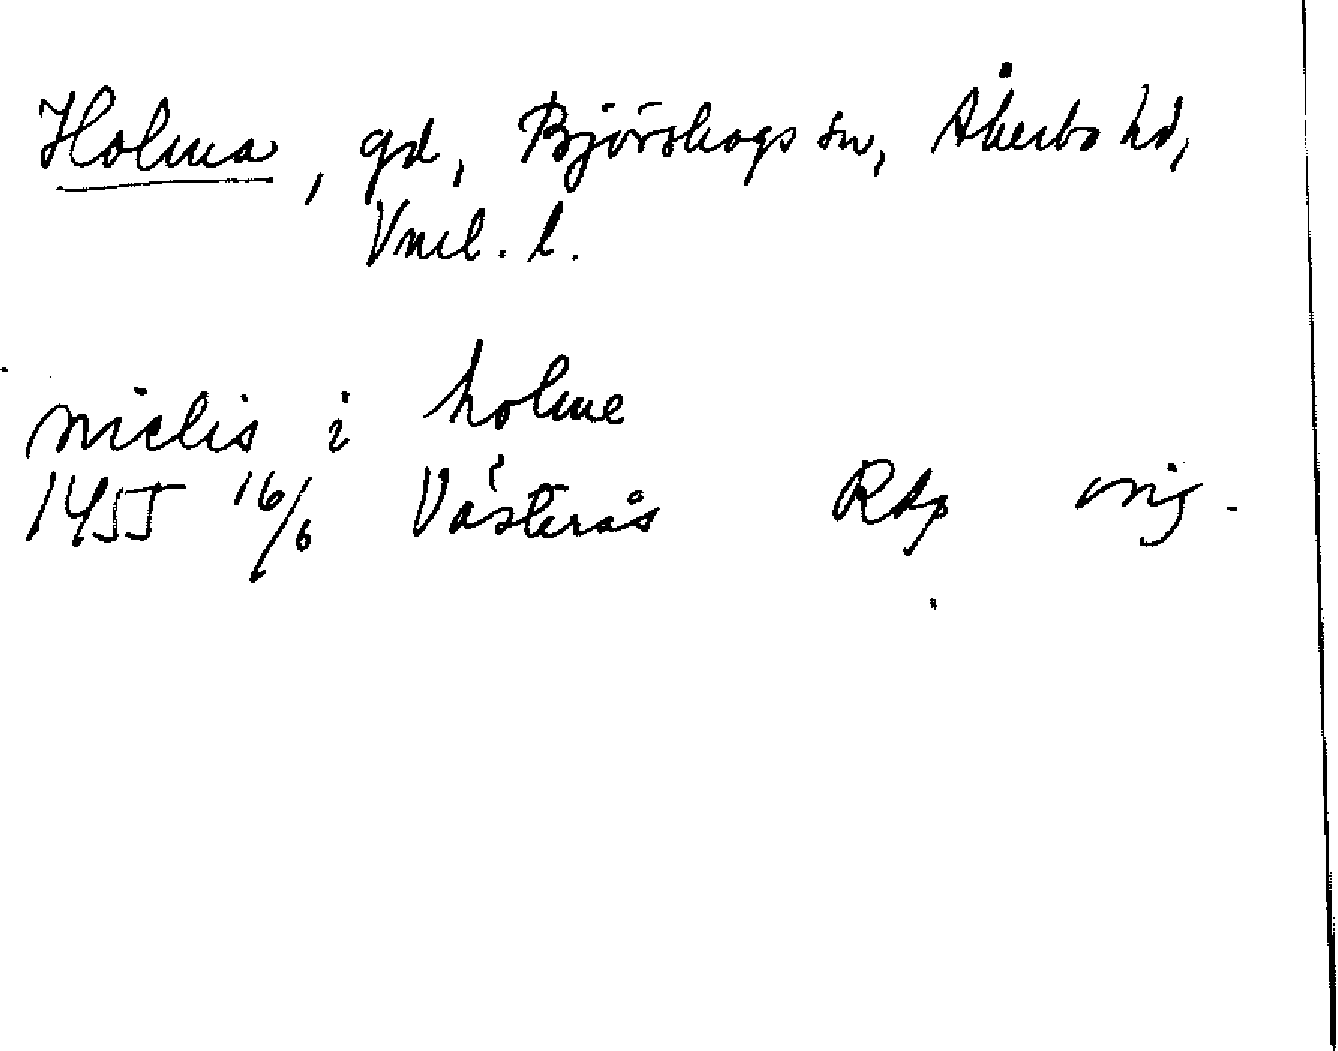 Holma, gd, Björskogs sn, Åkerbo hd,
Vml. l.
niclis i holme
1455 16/6 Västerås RAp orig.